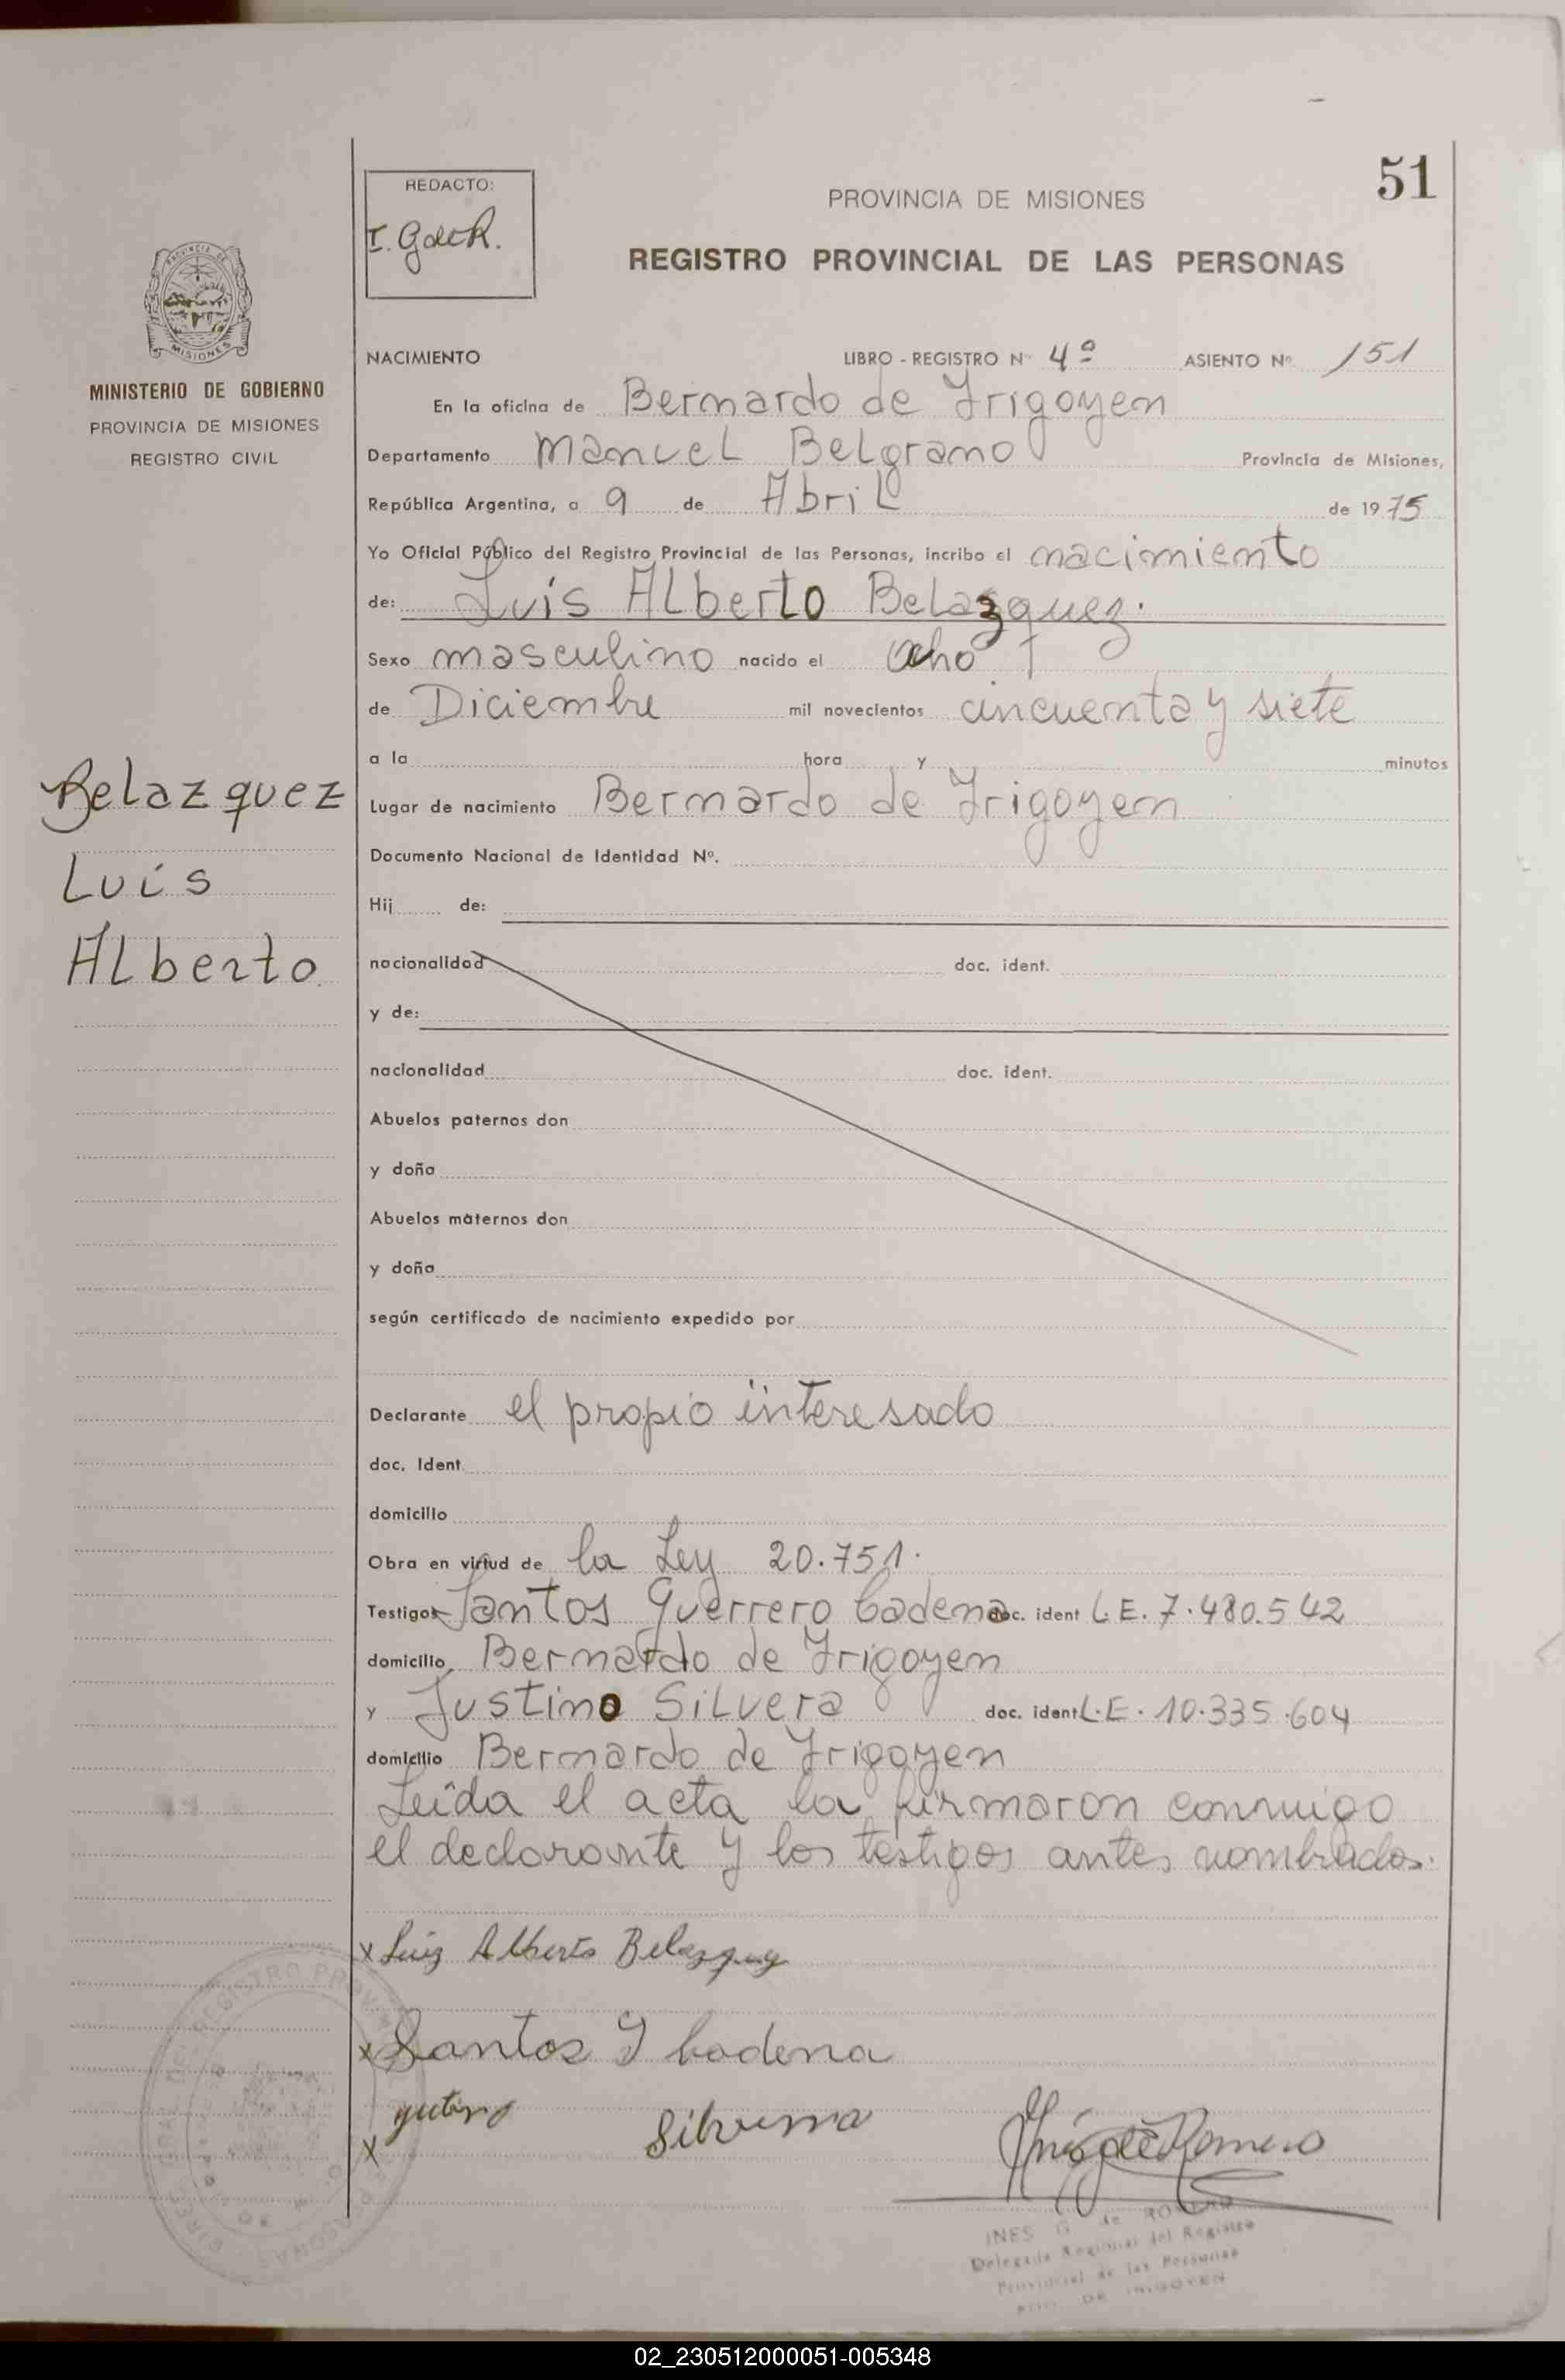 51
REDACTO:
I. G de R.
PROVINCIA DE MISIONES
REGISTRO PROVINCIAL DE LAS PERSONAS
MISIONES
MINISTERIO DE GOBIERNO
PROVINCIA DE MISIONES
REGISTRO CIVIL
Belazquez
Luis
Alberto
NACIMIENTO LIBRO - REGISTRO Nº 4º ASIENTO Nº 151
En la oficina de Bernardo de Irigoyen
Departamento Manuel Belgrano Provincia de Misiones,
República Argentina, a 9 de Abril de 1975
Yo Oficial Público del Registro Provincial de las Personas, incribo el nacimiento
de: Luis Alberto Belazquez.
Sexo masculino nacido el ocho
de Diciembre mil novecientos cincuenta y siete
a la hora y minutos
Lugar de nacimiento Bernardo de Irigoyen
Documento Nacional de Identidad Nº.
Hij de:
nacionalidad doc. ident.
y de:
nacionalidad doc. ident.
Abuelos paternos don
y doña
Abuelos maternos don
y doña
según certificado de nacimiento expedido por
Declarante el propio interesado
doc. Ident.
domicilio
Obra en virtud de la Ley 20.751.
Testigos Santos Guerrero Cadena doc. ident L.E. 7.480.542
domicilio Bernardo de Irigoyen
y Justino Silvera doc. ident L.E. 10.335.604
domicilio Bernardo de Irigoyen
Leída el acta la firmaron conmigo
el declarante y los testigos antes nombrados.
x Luiz Alberto Belazquez
x Santos G Cadena
x
Inés G de Romero
INES G de ROMERO
Delegada Regional del Registro
Provincial de las Personas
BDO. DE IRIGOYEN
02_230512000051-005348